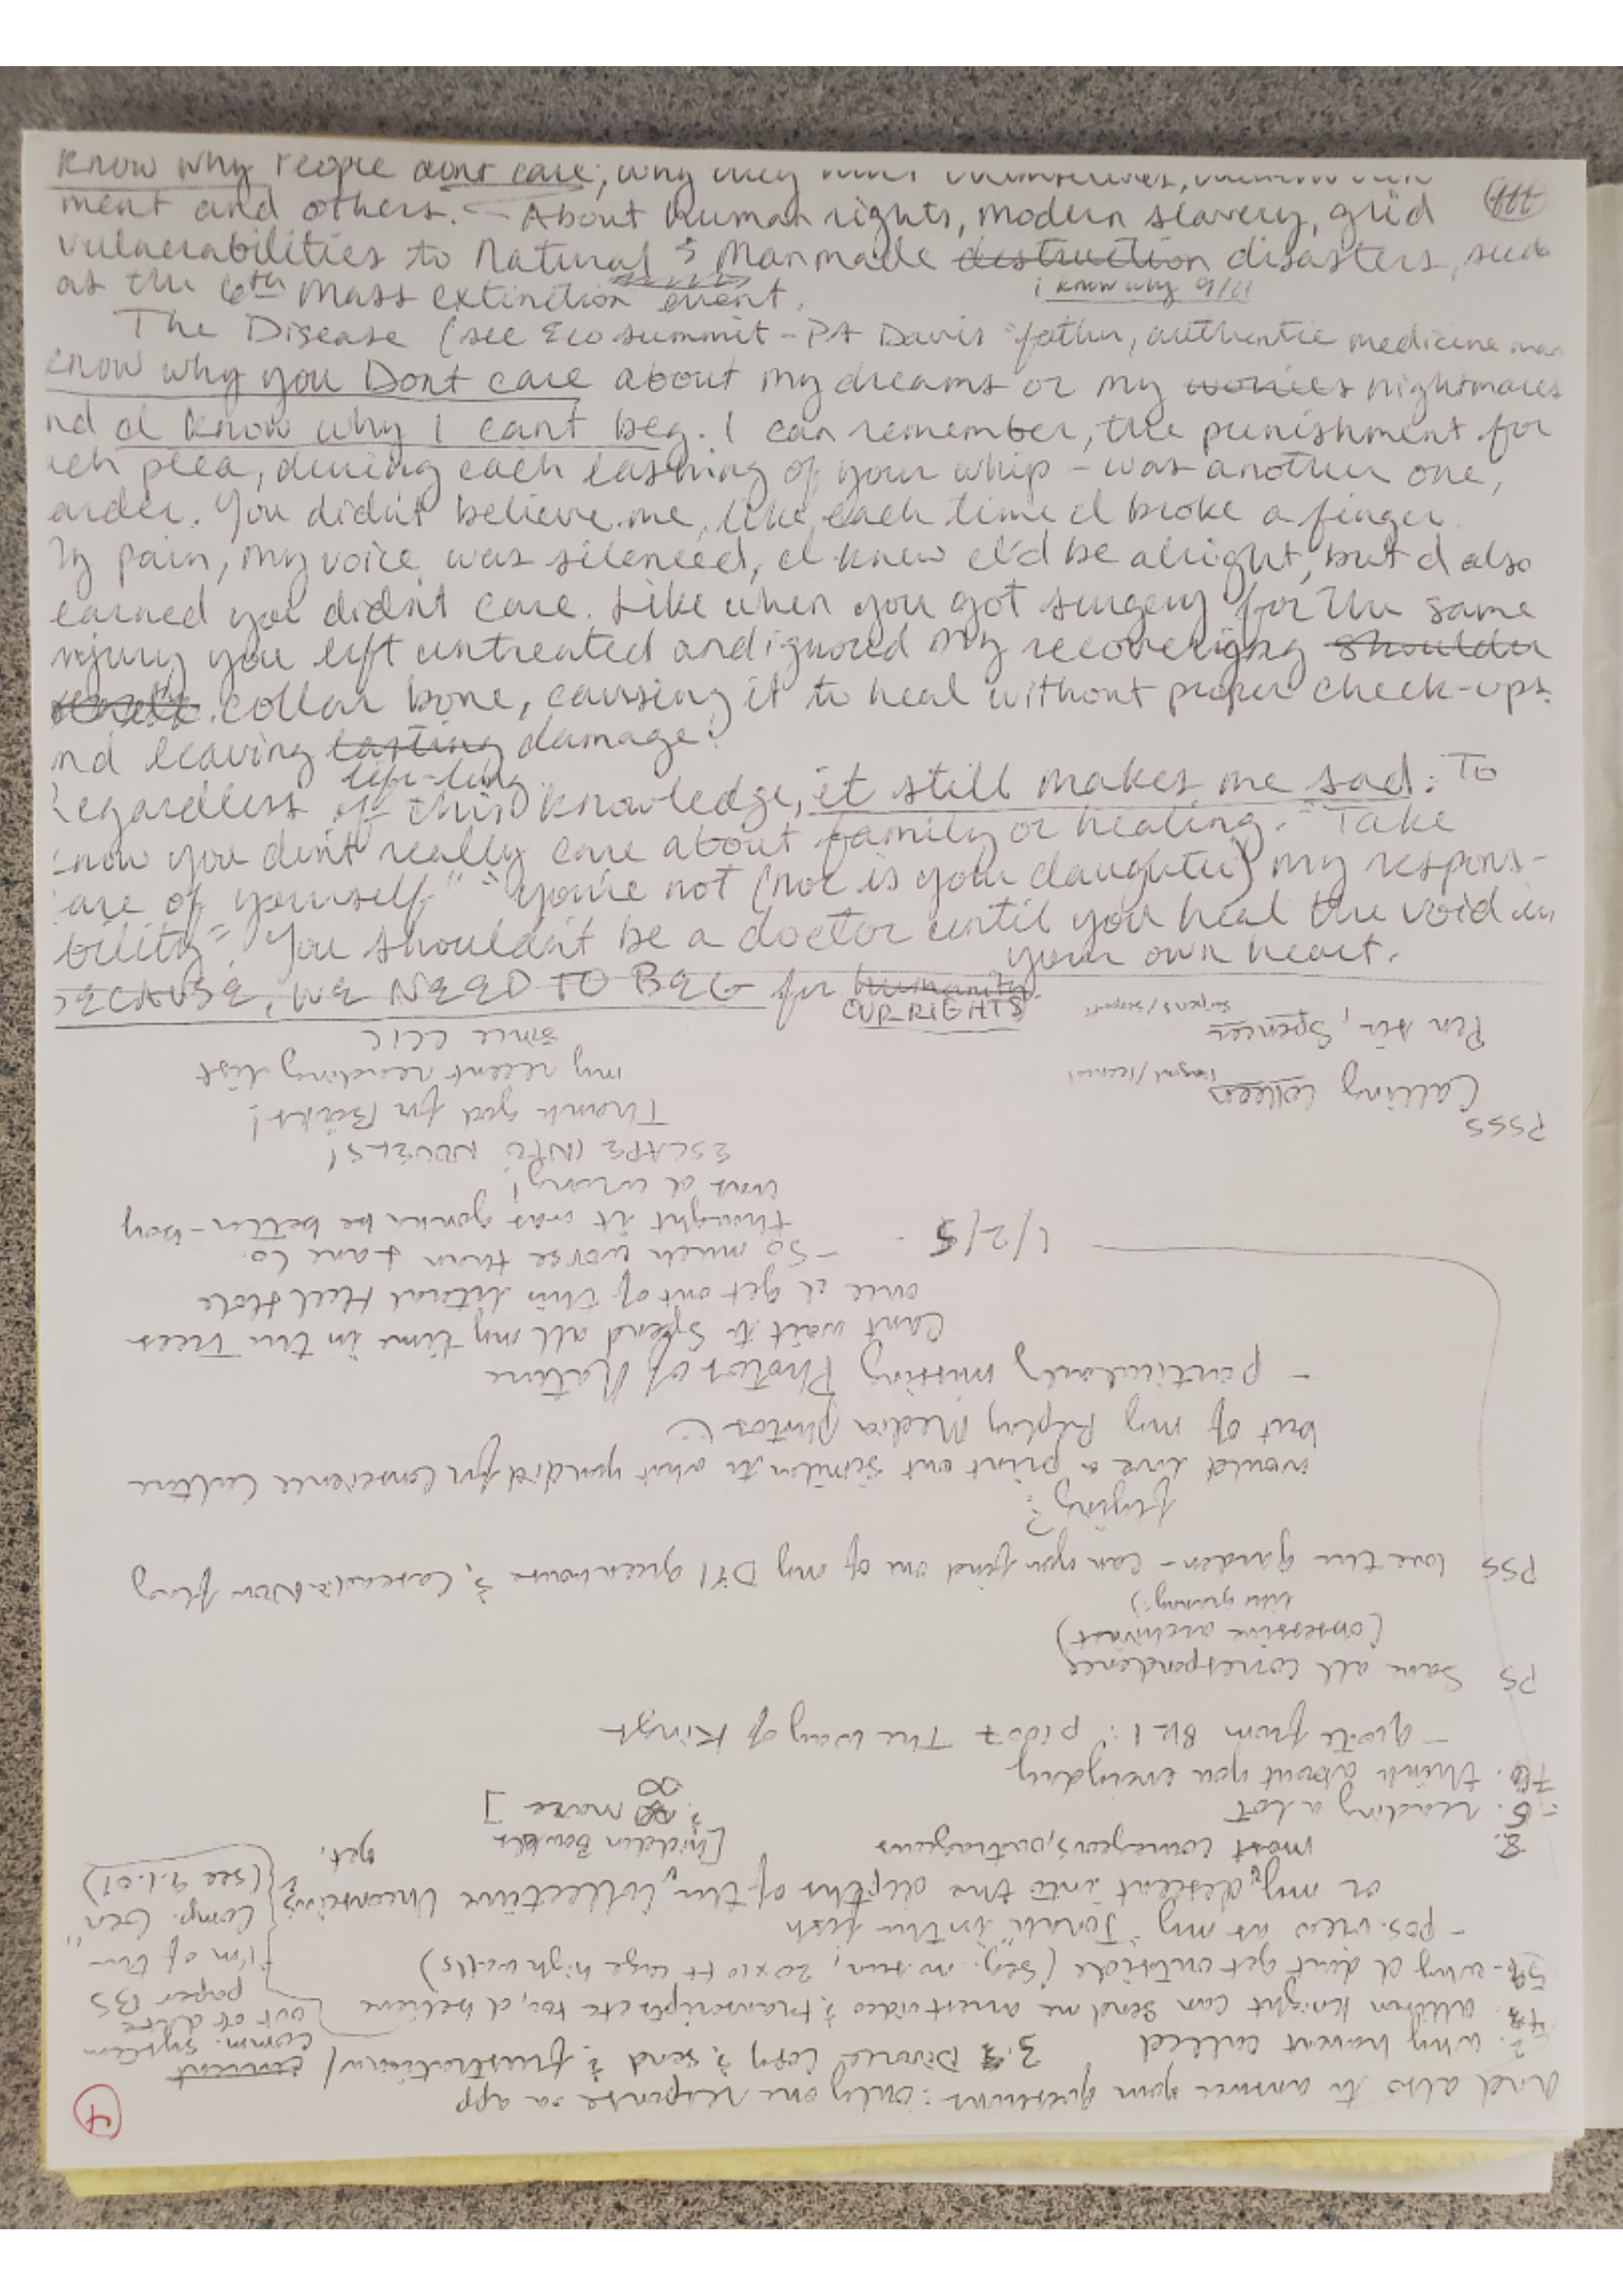 know why People dont care, why they
ment and others. - About human rights, modern slavery, grid
vulnerabilities to Natural & Manmade destruction disasters, such
as the 6th mass extinction event.
I know why 9/11
The Disease (see Ecosummit - PA Davis "father, authentic medicine man
know why you Dont care about my dreams or my worries nightmares
nd I know why I cant beg. I can remember, the punishment for
ch plea, during each lashing of your whip - was another one,
arder. You didn't believe me, like each time I broke a finger.
y pain, my voice was silenced, I knew I'd be alright, but I also
earned you didn't care. Like when you got surgery for the same
njury you left untreated and ignored my recovering shoulder
collar bone, causing it to heal without proper check-ups.
nd leaving lasting damage.
life-long
egardless of this knowledge, it still makes me sad: To
now you dont really care about family or healing. "Take
are of yourself" - "you're not (nor is your daughter) my respons-
bility". You shouldn't be a doctor until you heal the void in
your own heart.
ECAUSE, WE NEED TO BEG for humanity.
OUR RIGHTS
4
And also to answer your questions: only one response on app
2. why havent called
3. Divorce Copy & send & frustrations/ current
comm. system
4. Allison Knight can send me arrest video & transcripts etc too, I believe
out of date
paper BS
5. why I dont get outside (seg. no sun, 20x10 ft cage high walls)
film of the
- pos. view as my "Jonah" in the fish
Comp. Gen"
or my descent into the depths of the collective Unconscious
(see 9.1.01)
most courageous, outrageous
[hidden Bowels
& maze]
yet,
6. reading a lot
7. think about you everyday
- quote from BK 1: p1007 The Way of Kings
PS Save all correspondence
(obsessive archivist)
like granny:)
PSS love the garden - can you find one of my DIY greenhouse & CascadiaNow flag
flying?
would love a print out similar to what you did for Conscience Culture
but of my Replay Media photos :)
- particularly missing Photos of Nature
Cant wait to spend all my time in the Trees
once I get out of this literal Hell Hole
1/2/5
- So much worse than Lane Co.
thought it was gonna be better - boy
was I wrong!
ESCAPE INTO NOVELS!
PSSS
Thank god for Books!
Calling Colleen
my recent reading list
Pen Sir, Spencer
since CCIC